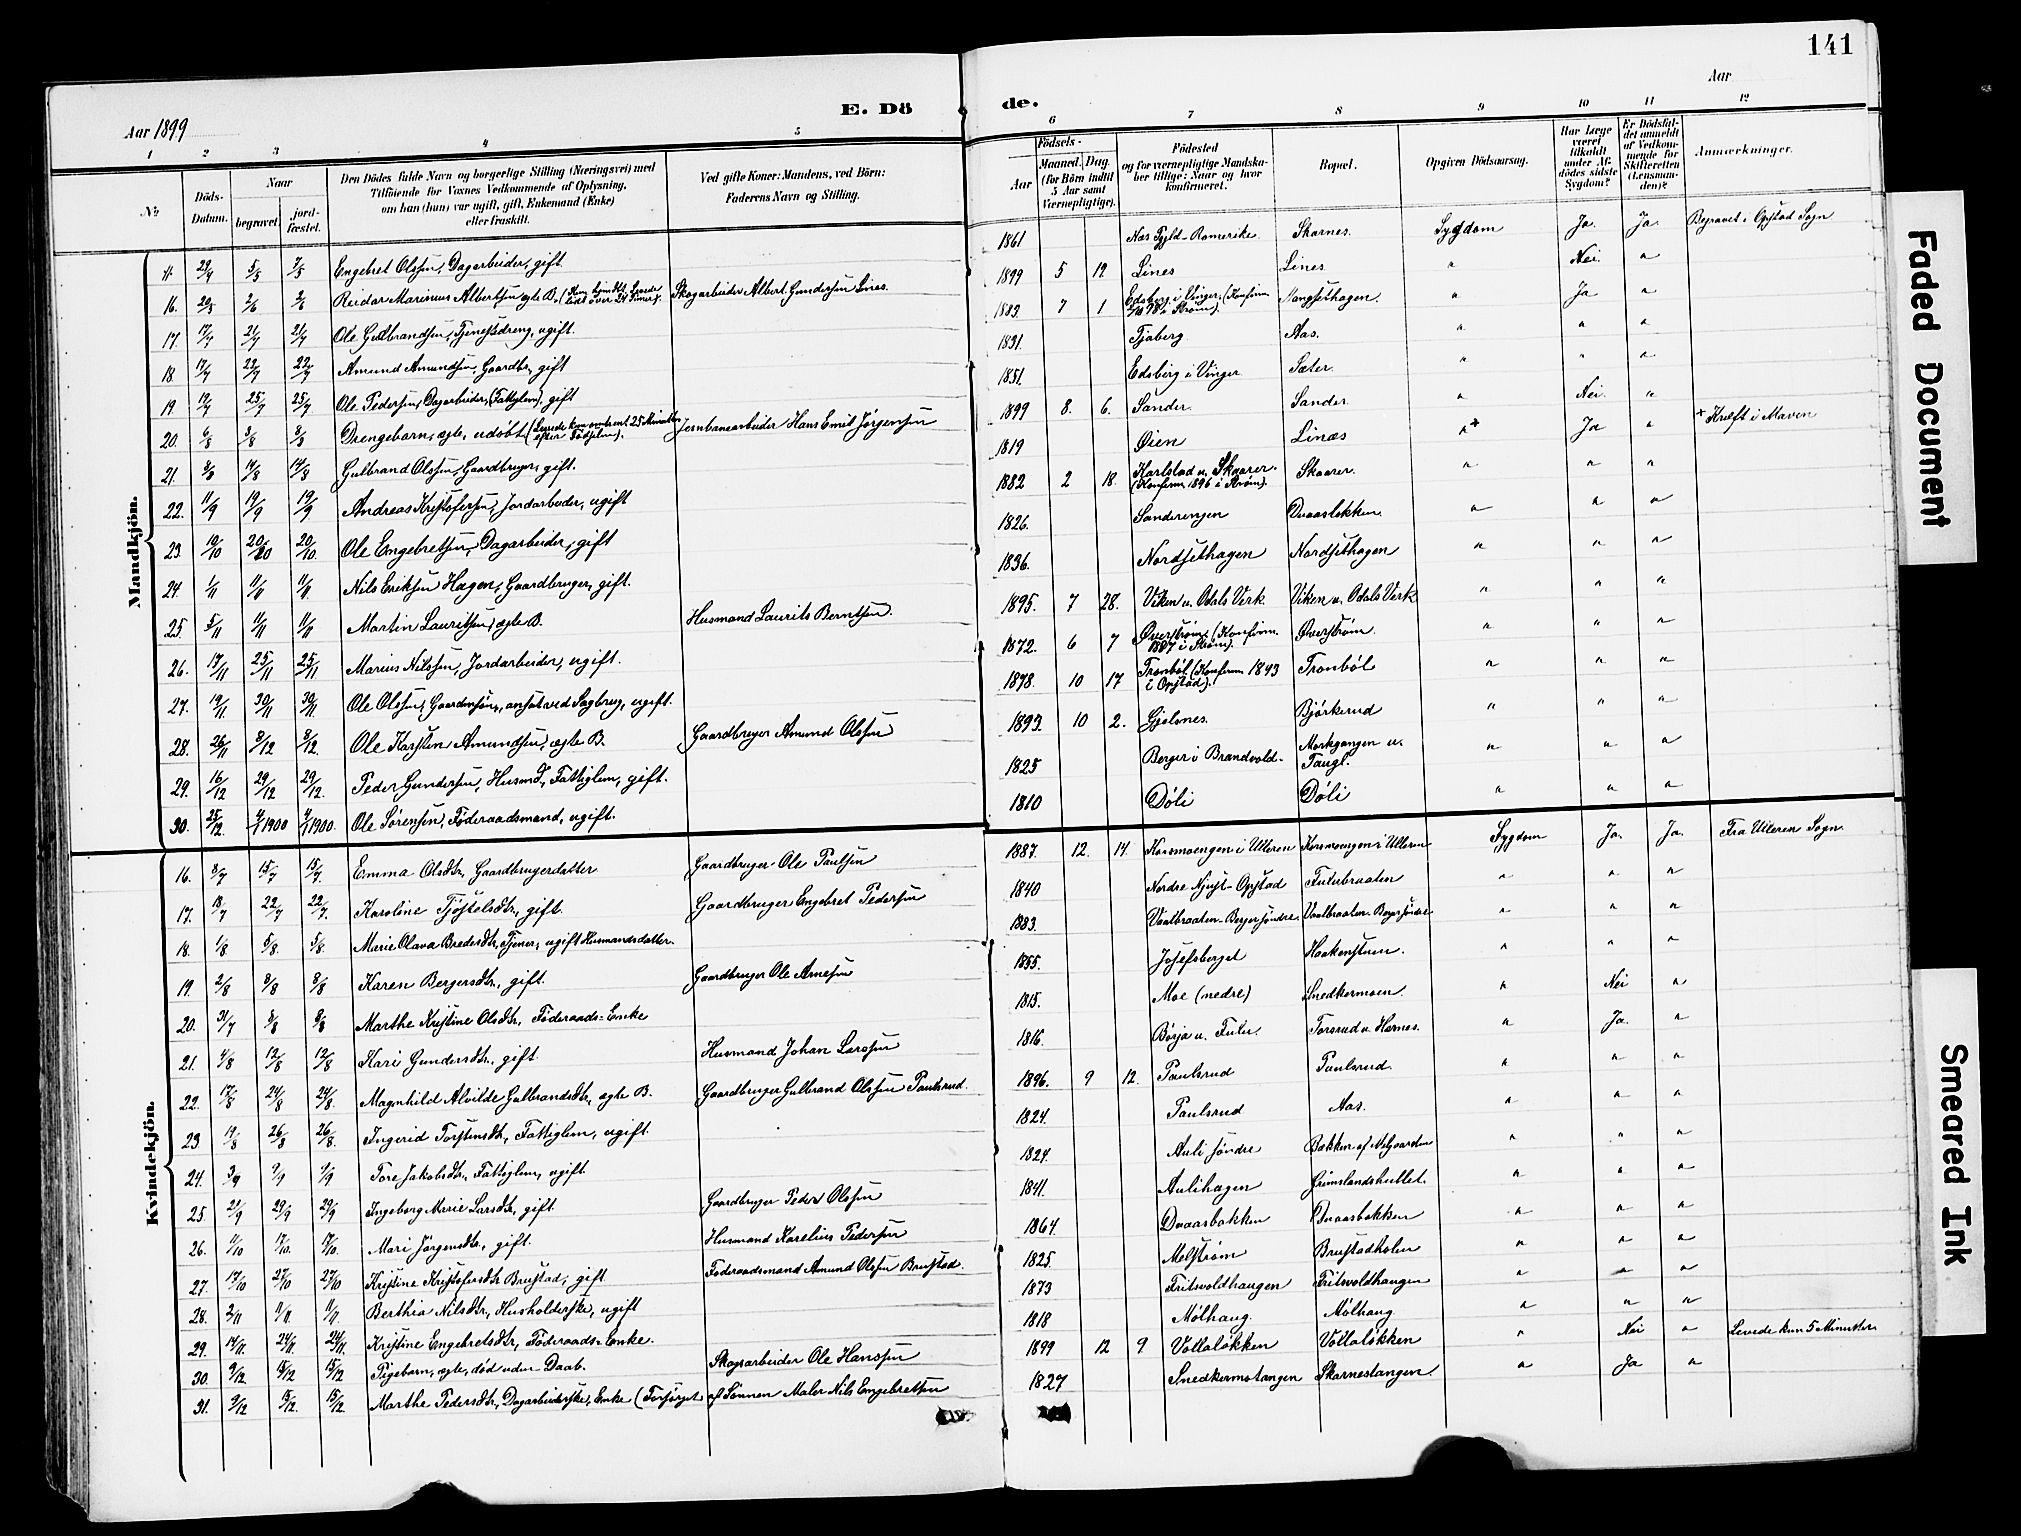 141
Aar 1899
E. Dö
de.
Aar
1 2 3 4 5 6 7 8 9 10 11 12
No
Döds-Datum.
Naar
begravet
jord-fæstet.
Den Dödes fulde Navn og borgerlige Stilling (Næringsvei) med
Tilföiende for Voxnes Vedkommende af Oplysning,
om han (hun) var ugift, gift, Enkemand (Enke)
eller fraskilt.
Ved gifte Koner: Mandens, ved Börn:
Faderens Navn og Stilling.
Födsels-
Aar
Maaned. Dag.
(for Börn indtil
5 Aar samt
Værnepligtige).
Födested
og for værnepligtige Mandska-
ber tillige: Naar og hvor
konfirmeret.
Bopæl.
Opgiven Dödsaarsag.
Har Læge
været
tilkaldt
under Af-
dödes sidste
Sygdom?
Er Dödsfal-
det anmeldt
af Vedkom-
mende for
Skifteretten
(Lensman-
den)?
Anmærkninger.
Mandkjön.
29/4 5/5 7/5 Engebret Olsen, Dagarbeider, gift. 1861 Skarnes. Sygdom Ja. Ja. Begravet i Opstad Sogn
16. 20/5 2/6 2/6 Reidar Marinius Albertsen ægte B. Skogarbeider Albert Gundersen Lines. 1899 5 12 Lines Lines " Nei "
17. 17/7 21/7 21/7 Ole Gulbrandsen, Tjenestdreng, ugift. 7 1 " Ja "
18. 17/7 22/7 22/7 Amund Amundsen, Gaardbr., gift 1831. Tjaberg Aas. " " "
19 19/7 25/7 25/7 Ole Pedersen, Dagarbeider, (Fattiglem), gift 1851. Edsberg i Vinger Sæter. " " "
20. 6/8 8/8 8/8 Drengebarn, ægte, udøbt (Levede kun omtrent 25 Minutter efter Fødselen). Jernbanearbeider Hans Emil Jørgensen 1899 8. 6. Sander. Sander " Nei. "
21. 8/8 14/8 14/8 Gulbrand Olsen, Gaardbruger, gift. 1819 Øien Linæs "+ Ja " + Kræft i Maven
22. 11/9 19/9 19/9 Andreas Kristofersen, Jordarbeider, ugift 1882 2 18. Karlstad u. Skaarer. (Konfirm. 1896 i Strøm). Skaarer. " " "
23. 19/10 20/10 20/10 Ole Engebretsen, Dagarbeider, gift 1826. Sanderengen Dvaasløkken. " " "
24. 1/11 11/11 11/11 Nils Eriksen Hagen, Gaardbruger, gift. 1836. Nordsethagen Nordsethagen " " "
25. 5/11 11/11 11/11 Martin Lauritsen, ægte B. Husmand Laurits Berntsen. 1895. 7 28. Viken u. Odals Verk. Viken u. Odals Verk " " "
26. 17/11 25/11 25/11 Marius Nilsen, Jordarbeider, ugift. 1872. 6 7 Øverstrøm, (Konfirm. 1887 i Strøm). Øverstrøm. " " "
27. 19/11 30/11 30/11 Ole Olsen, Gaardmsøn, ansat ved Sagbrug, ugift. 1878. 10 17 Tronbøl (Konfirm. 1893 i Opstad). Tronbøl " " "
28. 26/11 8/12 8/12. Ole Karsten Amundsen, ægte B. Gaardbruger Amund Olsen 1893. 10 2. Gjølsnes. Bjørkerud " " "
29. 16/12 29/12 29/12. Peder Gundersen, Husmd., Fattiglem, gift. 1825 Berger i Brandvold- Morkgangen u. Taugl. " " "
30. 25/12. 4/1 1900 4/1 1900. Ole Sørensen, Føderaadsmand, ugift. 1810 Døli Døli " " "
Kvindekjön.
16. 8/7 15/7 15/7. Emma Olsdtr., Gaardbrugerdatter Gaardbruger Ole Paulsen 1887. 12. 14. Korsmoengen i Ulleren Korsmoengen i Ulleren Sygdom Ja. Ja. Fra Ulleren Sogn.
17. 18/7 22/7 22/7. Karoline Tjøstelsdtr., gift. Gaardbruger Engebret Pedersen 1840 Fulubraaten " " "
18. 1/8 5/8 5/8 Marie Olava Bredesdtr., Tjener, ugift Husmandsdatter. 1883. Vaalbraaten-Berger søndre. Vaalbraaten-Berger søndre " " "
19. 2/8 8/8 8/8 Karen Bergersdtr., gift. Gaardbruger Ole Arnesen 1855. Josefsberget Haakenstuen. " " "
20. 31/7 8/8 8/8 Marthe Kristine Olsdtr., Føderaads-Enke 1815. Moe (nedre) Snedkermoen. " Nei "
21. 4/8 12/8 12/8 Kari Gundersdtr., gift. Husmand Johan Larsen 1816. Børja u. Fulu. Torsrud u. Hornes. " Ja. "
22. 17/8 24/8 24/8. Magnhild Alvilde Gulbrandsdtr., ægte B. Gaardbruger Gulbrand Olsen Paulsrud. 1896. 9 12. Paulsrud Paulsrud. " " "
23 19/8 26/8 26/8. Ingerid Torstensdtr., Fattiglem, ugift. 1824. Paulsrud Aas. " " "
24. 3/9 9/9 9/9 Tore Jakobsdtr., Fattiglem, ugift. 1824. Auli søndre Bakken af Nolgaarden " " "
25. 21/9 29/9 29/9 Ingeborg Marie Larsdtr., gift. Gaardbruger Peder Olsen 1841. Aulihagen Grimslandshullet. " " "
26. 11/10 17/10. 17/10. Mari Jørgensdtr., gift. Husmand Karelius Pedersen 1864 Dvaasbakken Dvaasbakken " " "
27. 17/10 27/10 27/10 Kristine Kristofersdtr. Brustad, gift Føderaadsmand Amund Olsen Brustad. 1825. Melstrøm Brustadholen " " "
28. 2/11 11/11. 11/11. Berthia Nilsdtr., Husholderske, ugift 1873 Fritsvoldhaugen Fritsvoldhaugen " " "
29. 14/11 24/11. 24/11. Kristine Engebretsdtr., Føderaads-Enke. 1818 Mølhaug. Mølhaug. " " "
30. 9/12 15/12 15/12 Pigebarn, ægte, død uden Daab. Skogsarbeider Ole Hansen 1899 12 9 Vollaløkken Vollaløkken " Nei " Levede kun 5 Minutter
31. 9/12 15/12. 15/12. Marthe Pedersdtr., Dagarbeiderske, Enke (Forsørget af Sønnen Maler Nils Engebretsen 1827 Snedkermotangen Skarnestangen. " Ja "
Faded Document
Smeared Ink